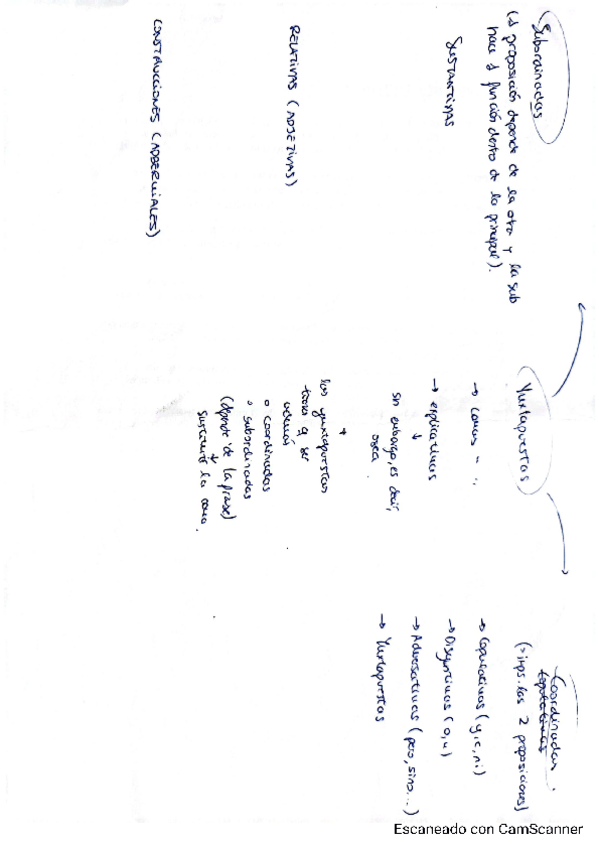 Subordinadas
(1 proposición depende de la otra y la sub
hace 1 función dentro de la principal).
SUSTANTIVAS
RELATIVAS (ADJETIVAS)
CONSTRUCCIONES (ADVERBIALES)
Yuxtapuestas
→ comas " ; ,
→ explicativas
↓
sin embargo, es decir,
osea
+
las yuxtapuestas
tiene q ser
además
o coordinadas
o subordinadas
(depende de la frase)
↓
sustituir la coma.
Coordinadas
(2 proposiciones)
→ Copulativas (y, e, ni)
→ Disyuntivas (o, u)
→ Adversativas (pero, sino...)
→ Yuxtapuestas
Escaneado con CamScanner